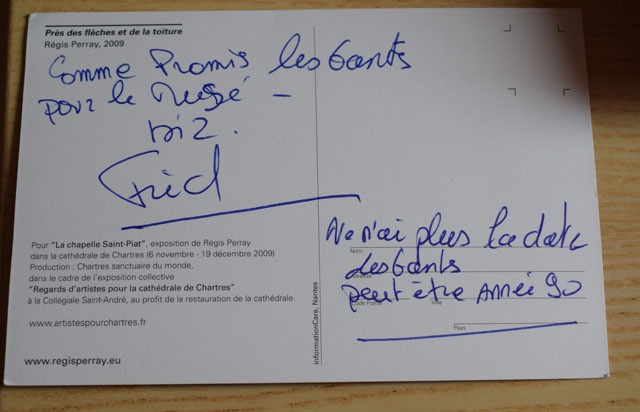 Près des flèches et de la toiture
Régis Perray, 2009
Comme Promis les Gants
pour le Musée –
biz.
Fred
Pour "La chapelle Saint-Piat", exposition de Régis Perray
dans la cathédrale de Chartres (6 novembre - 19 décembre 2009)
Production : Chartres sanctuaire du monde,
dans le cadre de l'exposition collective
"Regards d'artistes pour la cathédrale de Chartres"
à la Collégiale Saint-André, au profit de la restauration de la cathédrale.
www.artistespourchartres.fr
www.regisperray.eu
informationCare, Nantes
Ne n'ai plus la date
Nom
des Gants
Adresse
peut être Année 90
Code Postal Ville
Pays